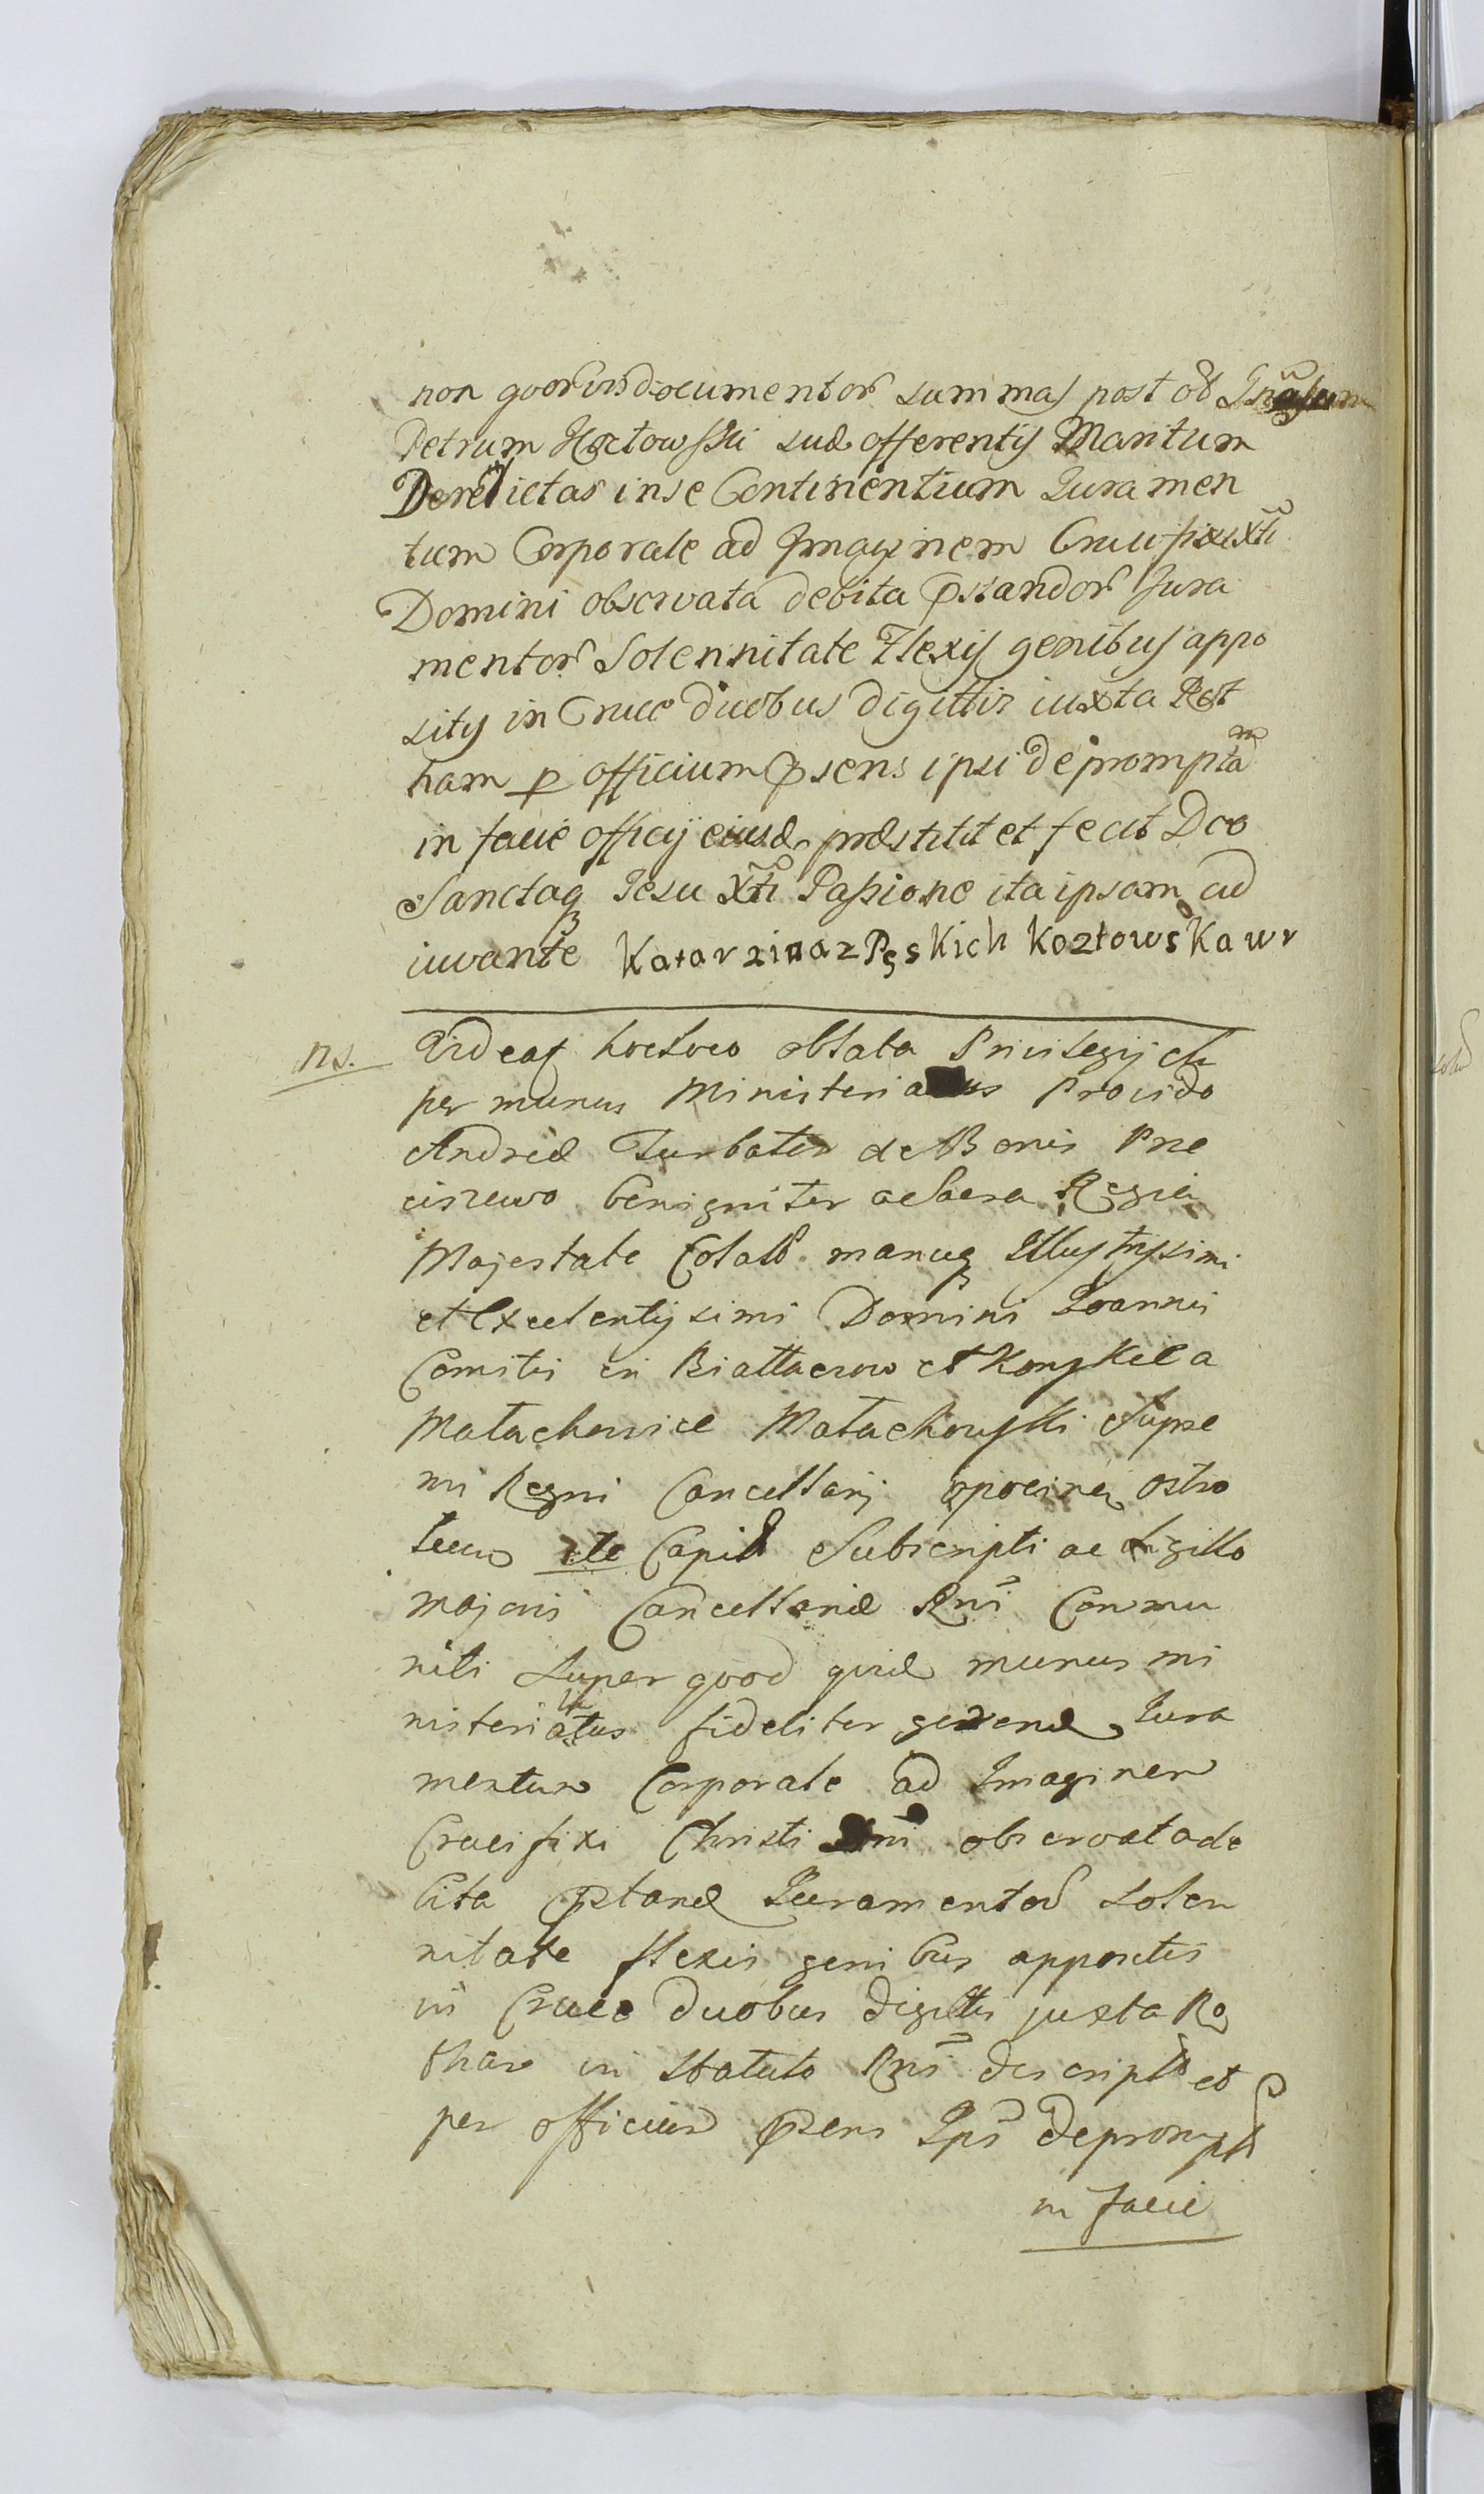 non quorvis documentor summas post ob
Petrum Kozłowski suae offerentis Maritum
Derelictas in se Continentium Juramen
tum Corporale ad Imaginem Crucifixi Xti
Domini observata debita pstandor Jura
mentor Solennitate Flexis genibus appo
sitis in Cruce duobus digittis iuxta Rot
ham p officium psens ipsi depromptam
in facie officij eiusd praestitit et fecit Deo
Sanctaq Jesu Xti Passione ita ipsam ad
iuvante Katarzina z Pęskich Kozłowska wr
ns. Videat hocloco oblata Privilegij
per munus Ministeria us Provido
Andreae de Bonis Prze
ciszewo benigniter a Sacra Regia
Majestate Colato manuq Illustrissimi
et Excelentissimi Domini Joannis
Comitis in Białłaczow et Konskie a
Małachowice Małachowski Supre
mi Regni Cancellarij opocinen ostro
lecen etc Capit Subscripti ac Sigillo
majoris Cancellariae Rni Commu
niti Super quod quid munus mi
nisteriatus fideliter gerend Jura
mentum Corporale ad Imaginem
Crucifixi Christi Dni observata de
bita pstand Juramentor Solen
nitate flexis genibus appositis
in Cruce duobus digittis juxta Ro
tham in Statuto Rni descript et
per officium psens Ipsi deprompt
in facie